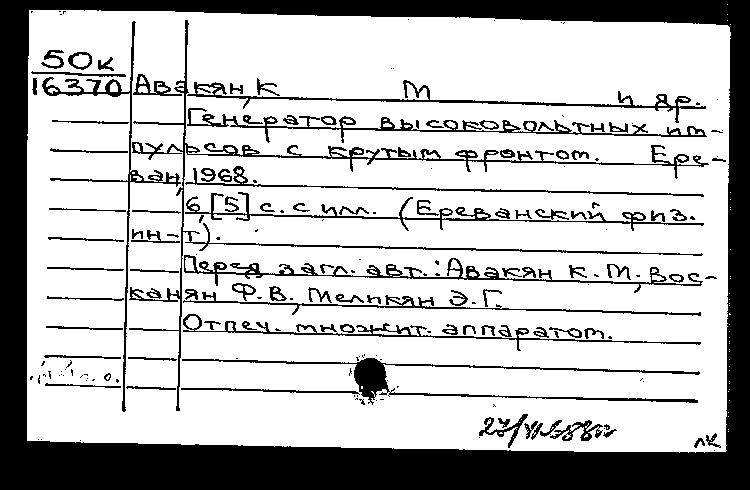 50к
16370 Авакян, К М и др.
Генератор высоковольтных им-
пульсов с крутым фронтом. Ере-
ван, 1968.
6, [5] с. с илл. (Ереванский физ.
ин-т).
Перед загл. авт.: Авакян К. М., Вос-
канян Ф. В., Меликян Э. Г.
Отпеч. множит. аппаратом.
лк